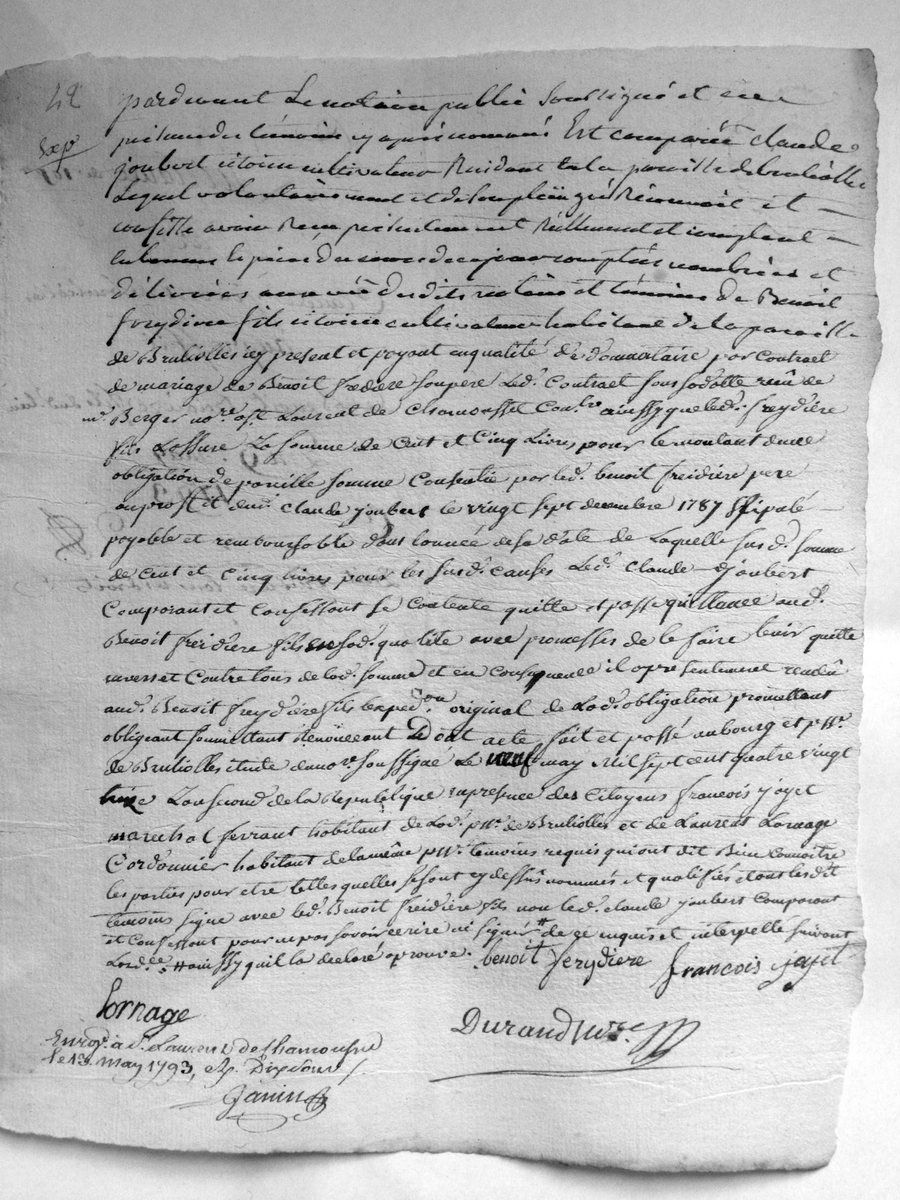 42
Exp
pardevant Le notaire public soussigné et en
presence des témoins cy aprés nommés Est comparûe Claude
joubert citoien cultivateur Residant en la paroisse de bruliolles
Lequel volontairement et de son plein gré Réconnoit et
confesse avoir Reçu présentement Réellement et comptant
en bonnes Espéces du cours de ce jour comptées nombrées et
délivrées au vû desdits notaire et témoins de Benoit
freydiere fils citoien cultivateur habitant de la paroisse
de Bruliolles icy present et payant en qualité de donnataire par Contract
de mariage de Benoit fredière son pere Led. Contract sous sa datte reçû de
me Berger nore. a St Laurent de Chamousset Con.lé ainssy que led. freydière
fils L'assure La somme de Cent et Cinq Livres pour le montant d'une
obligation de pareille somme Consentie par led. benoit freidière pere
au proffit dud. Claude joubert le vingt sept decembre 1787
payable et remboursable dans l'année de sa date de Laquelle susd. somme
de Cent et Cinq livres pour les susd. causes Led. Claude joubert
Comparant et Confessant se Contente quitte et passe quittance aud.
Benoit freidière fils en sad. qualité avec promesses de le faire tenir quitte
envers et Contre tous de lad. somme et en Conséquence il a presentement rendû
aud. Benoit freydière fils l'exped.on original de Lad. obligation promettant
obligeant soumettant Renonceant Dont acte fait et passé au bourg et psse.
de Bruliolles étude du nore. soussigné Le neuf may Mil sept cent quatre vingt
treize L'an second de la Republique en presence des Citoyens francois jayet
marechal ferrant habitant de Lad. psse. de Bruliolles et de Laurent Lornage
Cordonnier habitant de la même psse. temoins requis qui ont dit Bien Connoitre
les parties pour etre telles quelles se sont cy dessûs nommés et qualifiés et ont lesdit
temoins signé avec led. Benoit freidière fils non led. claude joubert Comparant
et Confessant pour ne pas savoir ecrire ni signer de ce enquis et interpellé suivant
Lord.ce # ainssy quil la declaré aprouvé. benoit freydiere francois jayet
Lornage
Durand nore
Enreg. à St. Laurent de chamousset
le 13 may 1793, Rp. Dix sous
Janin